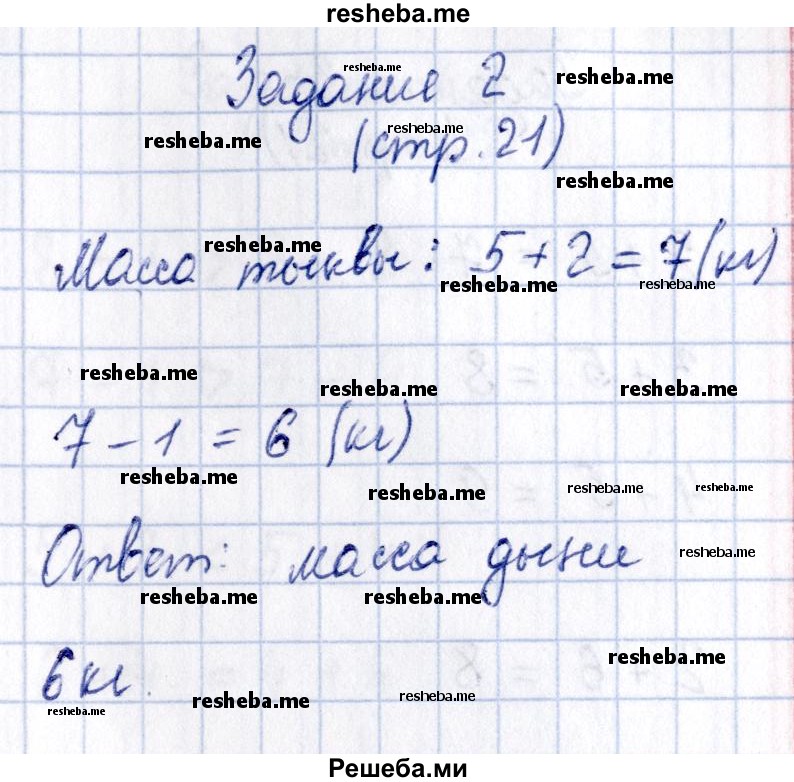 resheba.me
resheba.me
Задание 2
resheba.me
resheba.me
resheba.me
(стр. 21)
resheba.me
resheba.me
Масса тыквы: 5 + 2 = 7 (кг)
resheba.me
resheba.me
resheba.me
resheba.me
resheba.me
7 - 1 = 6 (кг)
resheba.me
resheba.me
resheba.me
resheba.me
Ответ: масса дыни
resheba.me
resheba.me
resheba.me
resheba.me
6 кг.
resheba.me
resheba.me
resheba.me
Решеба.ми